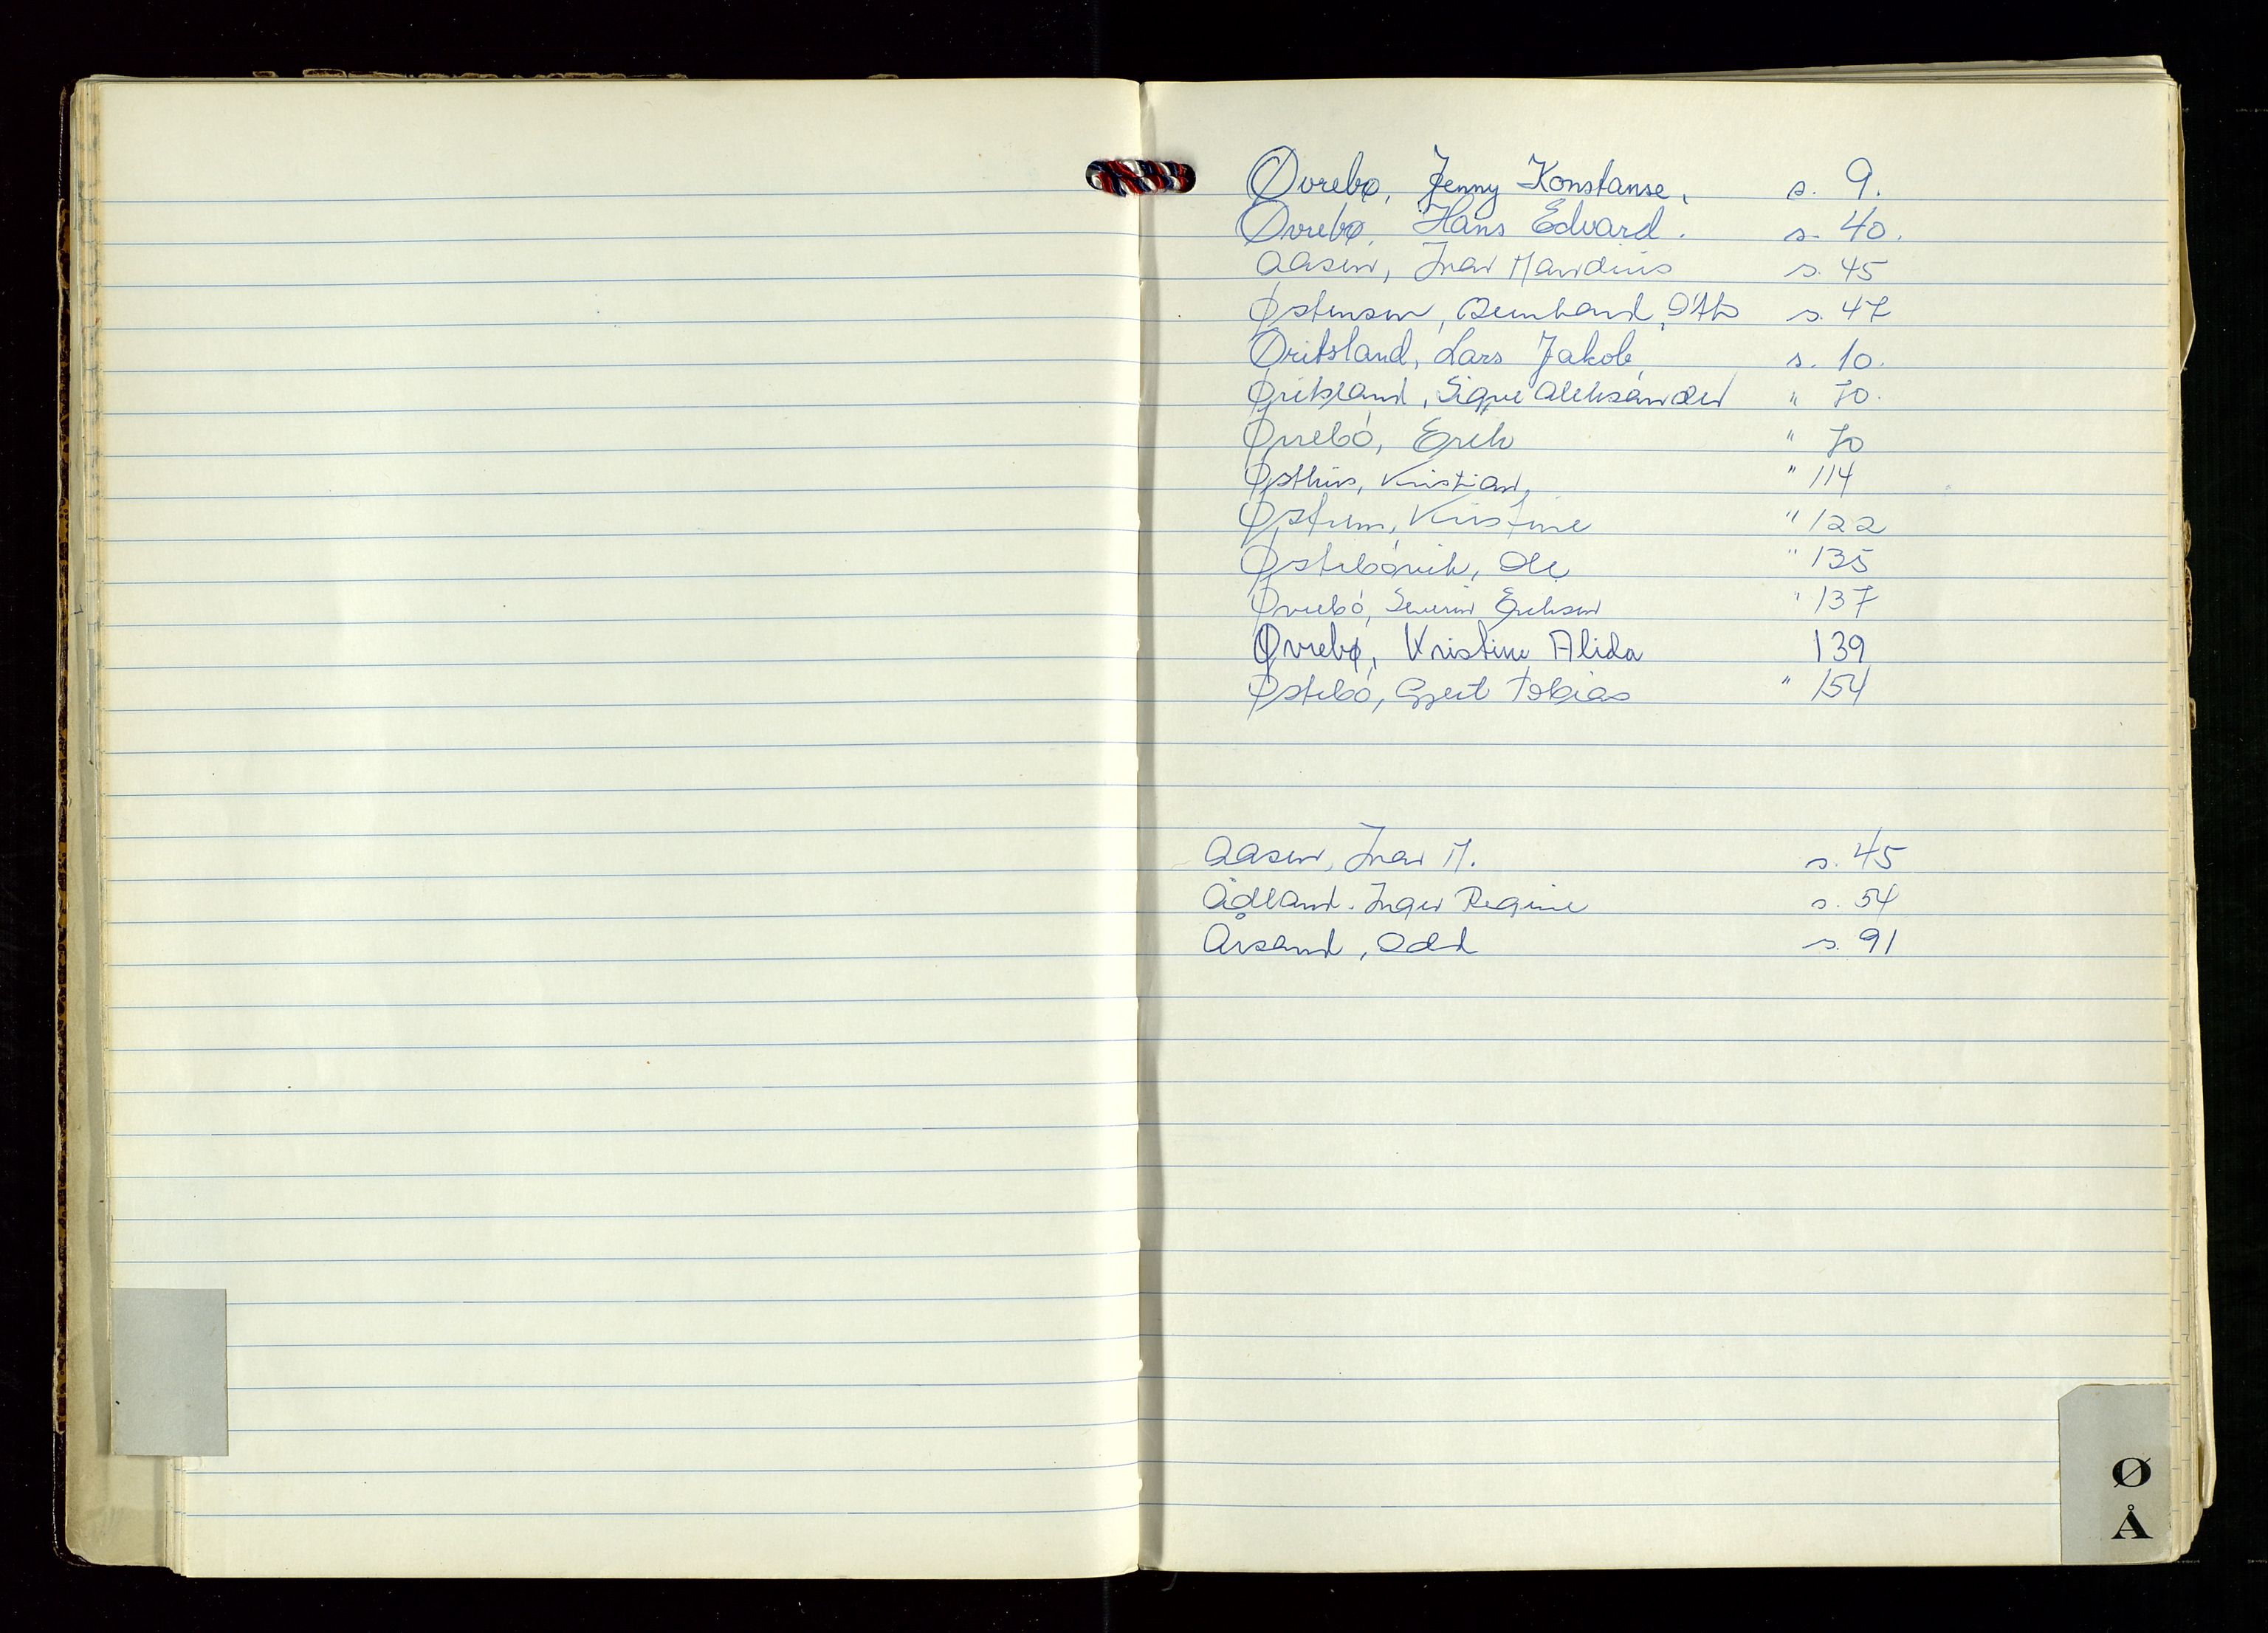 Øvrebø, Jenny Konstanse, s. 9.
Øvrebø, Hans Edvard. s. 40.
Aasen, Ivar Mandius s. 45
Østensen, Bernhard, s. 47
Øritsland, Lars Jakob, s. 10.
Øritsland, Sigve Aleksander " 70.
Øvrebó, Erik " 70
Østhus, Kristian, " 114
Østrem, Kristine " 122
Østebóvik, Ole " 135
Øvrebó, Severin Eriksen " 137
Øvrebø, Kristine Alida 139
Østebó, Gjert Tobias " 154
Aasen, Ivar M. s. 45
Ådland. Inger Regine s. 54
Årsand, Odd s. 91
Ø
Å